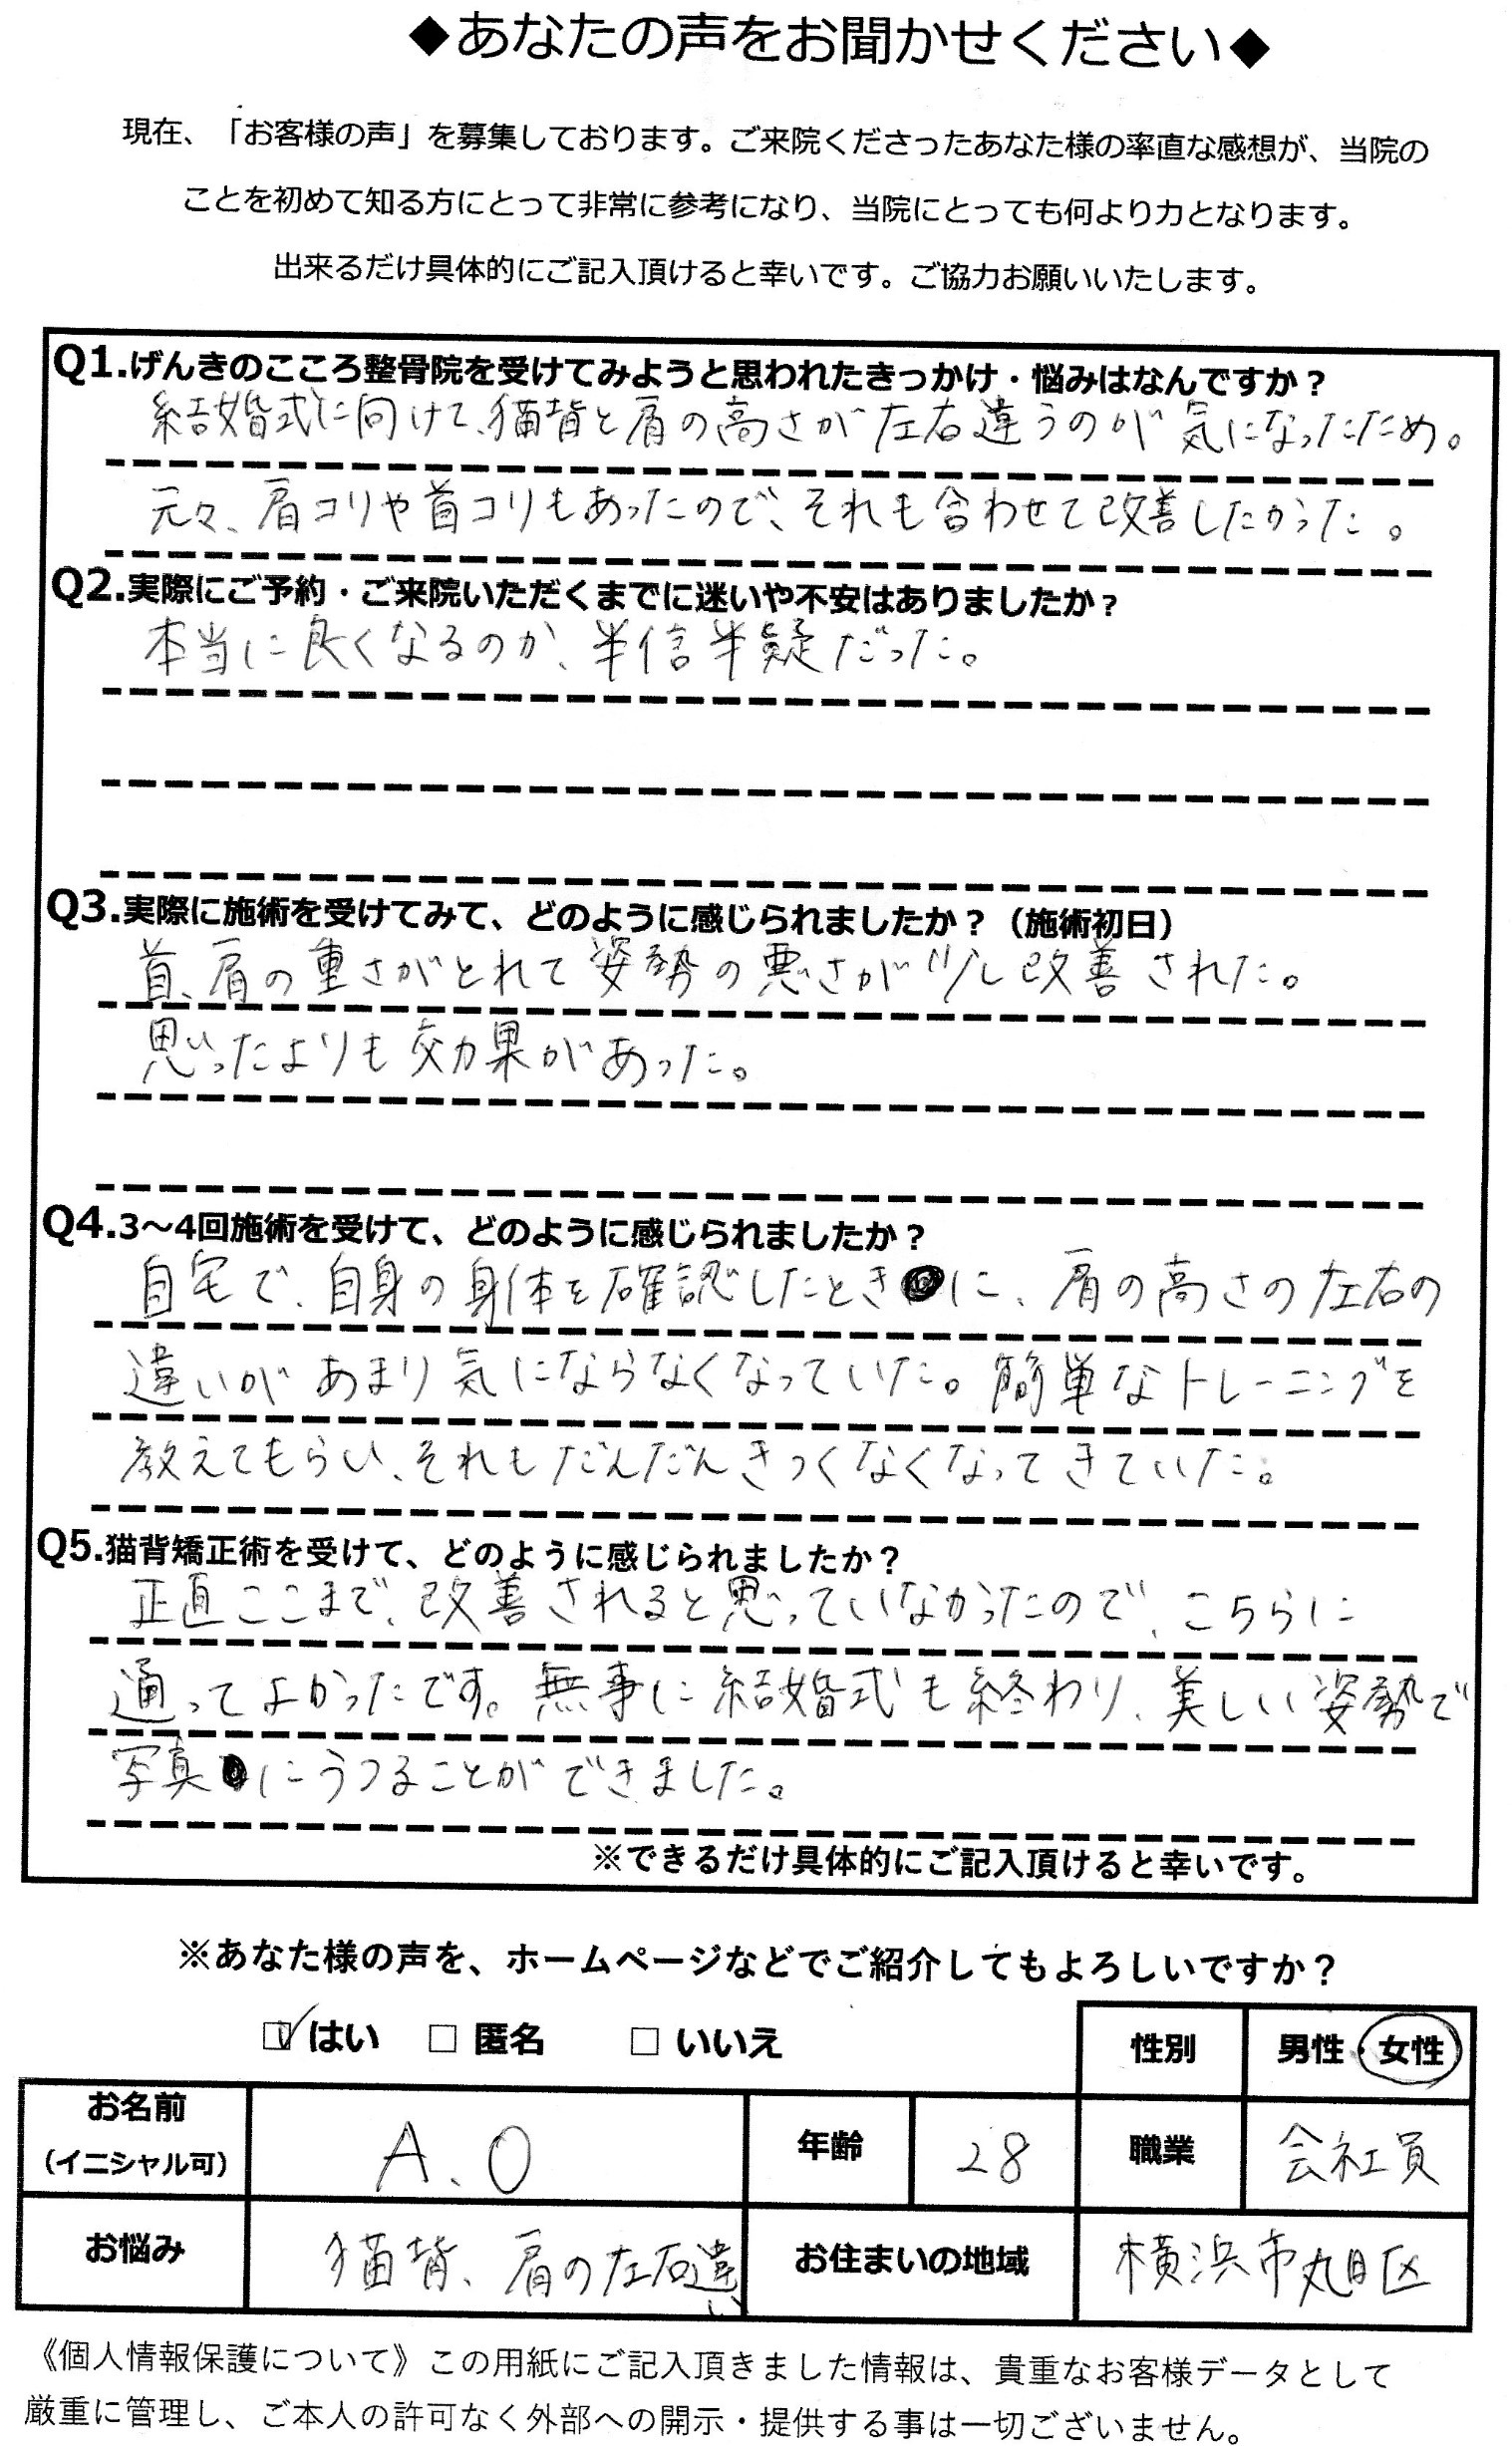 ◆あなたの声をお聞かせください◆
現在、「お客様の声」を募集しております。ご来院くださったあなた様の率直な感想が、当院の
ことを初めて知る方にとって非常に参考になり、当院にとっても何より力となります。
出来るだけ具体的にご記入頂けると幸いです。ご協力お願いいたします。
Q1.げんきのこころ整骨院を受けてみようと思われたきっかけ・悩みはなんですか？
結婚式に向けて、猫背と肩の高さが左右違うのが気になったため。
元々、肩コリや首コリもあったので、それも合わせて改善したかった。
Q2.実際にご予約・ご来院いただくまでに迷いや不安はありましたか？
本当に良くなるのか、半信半疑だった。
Q3.実際に施術を受けてみて、どのように感じられましたか？（施術初日）
首、肩の重さがとれて姿勢の悪さが少し改善された。
思ったよりも効果があった。
Q4.3～4回施術を受けて、どのように感じられましたか？
自宅で、自身の身体を確認したときに、肩の高さの左右の
違いがあまり気にならなくなっていた。簡単なトレーニングを
教えてもらい、それもだんだんきつくなくなってきていた。
Q5.猫背矯正術を受けて、どのように感じられましたか？
正直ここまで、改善されると思っていなかったので、こちらに
通ってよかったです。無事に結婚式も終わり、美しい姿勢で
写真にうつることができました。
※できるだけ具体的にご記入頂けると幸いです。
※あなた様の声を、ホームページなどでご紹介してもよろしいですか？
☑はい □匿名 □いいえ 性別 男性・女性
お名前（イニシャル可） A.O 年齢 28 職業 会社員
お悩み 猫背、肩の左右違い お住まいの地域 横浜市
《個人情報保護について》この用紙にご記入頂きました情報は、貴重なお客様データとして
厳重に管理し、ご本人の許可なく外部への開示・提供する事は一切ございません。